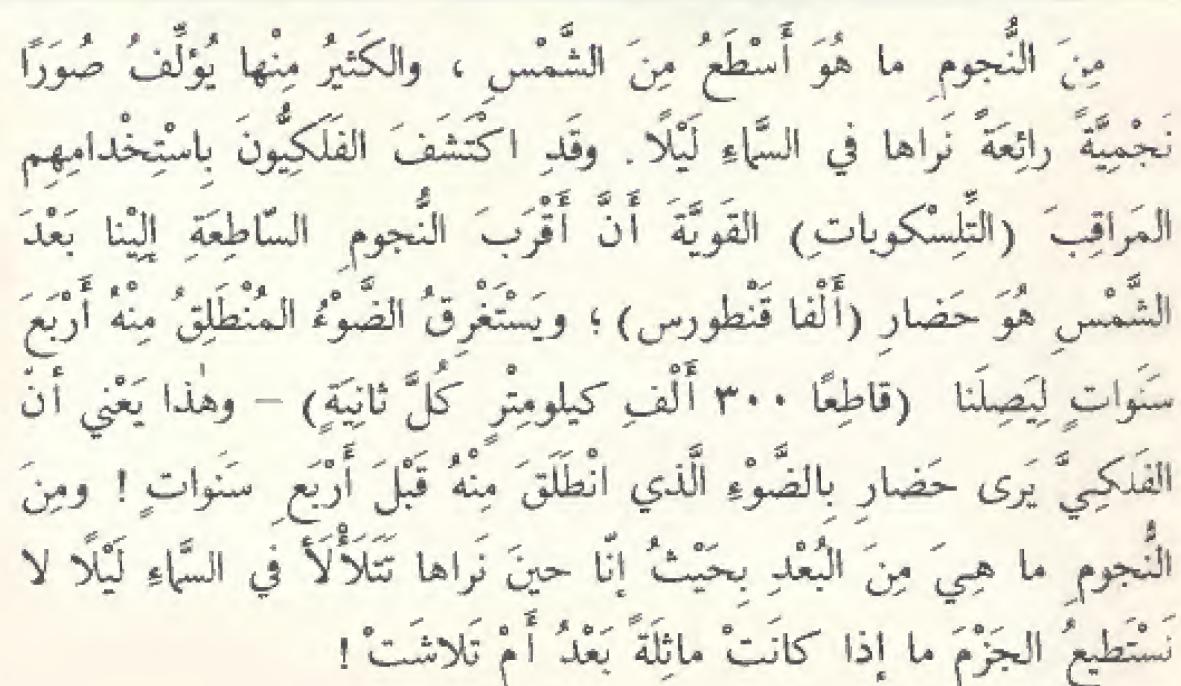 مِنَ النُّجومِ ما هُوَ أَسْطَعُ مِنَ الشَّمْسِ ، والكَثيرُ مِنْها يُؤلِّفُ صُوَرًا
نَجْمِيَّةً رائِعَةً نَراها في السَّماءِ لَيْلًا . وقَدِ اكْتَشَفَ الفَلَكِيُّونَ بِاسْتِخْدامِهِمِ
المَراقِبَ (التِّلِسْكوباتِ) القَوِيَّةَ أَنَّ أَقْرَبَ النُّجومِ السّاطِعَةِ إِلَيْنا بَعْدَ
الشَّمْسِ هُوَ حَضارِ (أَلْفا قَنْطورس) ؛ ويَسْتَغْرِقُ الضَّوْءُ المُنْطَلِقُ مِنْهُ أَرْبَعَ
سَنَواتٍ لِيَصِلَنا (قاطِعًا ٣٠٠ أَلْفِ كيلومِتْرٍ كُلَّ ثانِيَةٍ) – وهٰذا يَعْني أَنَّ
الفَلَكِيَّ يَرى حَضارِ بِالضَّوْءِ الَّذي انْطَلَقَ مِنْهُ قَبْلَ أَرْبَعِ سَنَواتٍ ! ومِنَ
النُّجومِ ما هِيَ مِنَ البُعْدِ بِحَيْثُ إِنّا حينَ نَراها تَتَلَأْلَأُ في السَّماءِ لَيْلًا لا
نَسْتَطيعُ الجَزْمَ ما إذا كانَتْ ماثِلَةً بَعْدُ أَمْ تَلاشَتْ !